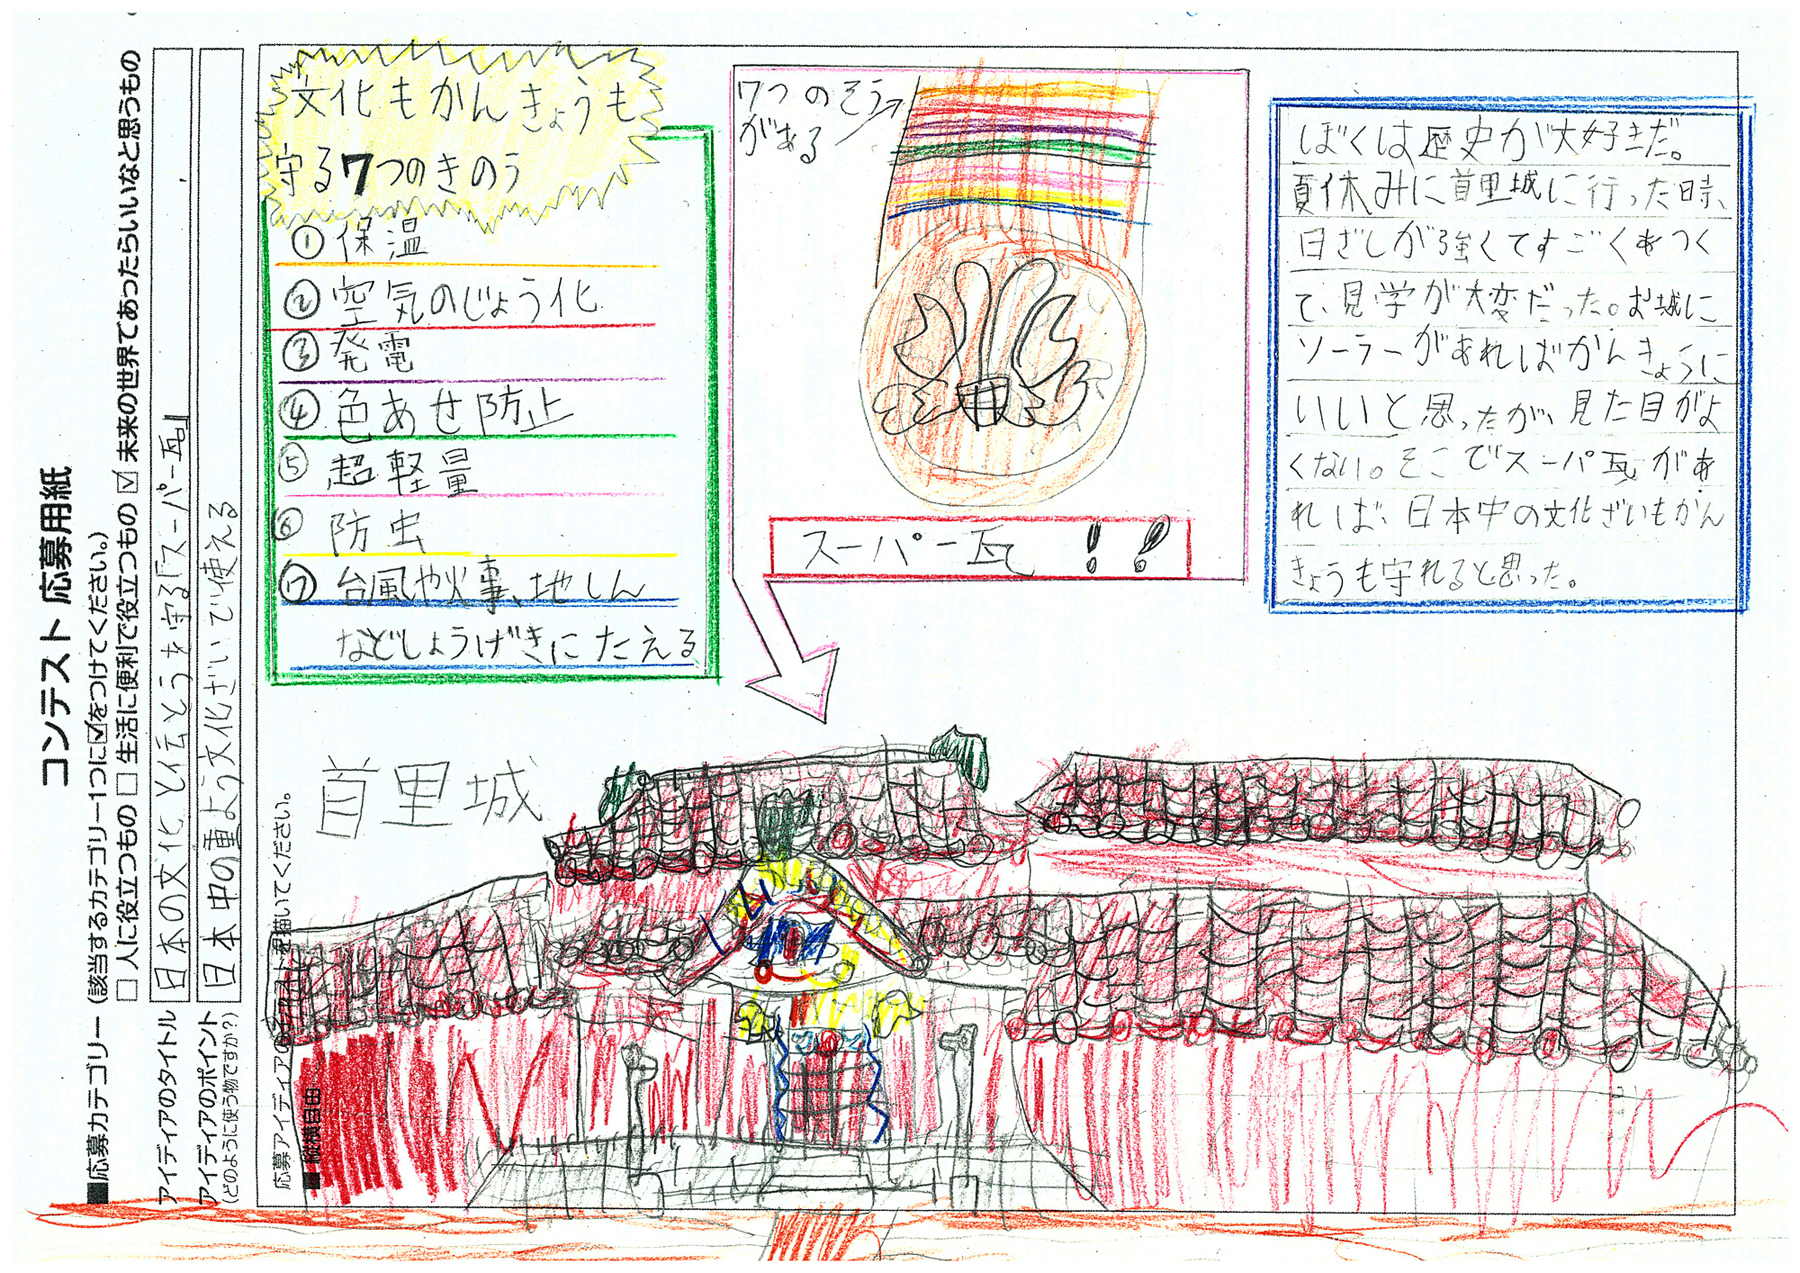 コンテスト 応募用紙
■応募カテゴリー (該当するカテゴリー1つに☑をつけてください。)
□ 人に役立つもの □ 生活に便利で役立つもの ☑ 未来の世界であったらいいなと思うもの
アイディアのタイトル
日本の文化と伝とうを守る『スーパー瓦』
アイディアのポイント
(どのように使う物ですか?)
日本中の重ような文化ざいで使える
応募アイディアのイラストを描いてください。
■ 縦横自由
文化もかんきょうも
守る7つのきのう
①保温
②空気のじょう化
③発電
④色あせ防止
⑤超軽量
⑥防虫
⑦台風や火事、地しん
などしょうげきにたえる
7つのそう
がある
スーパー瓦!!
ぼくは歴史が大好きだ。
夏休みに首里城に行った時、
日ざしが強くてすごくあつく
て、見学が大変だった。お城に
ソーラーがあればかんきょうに
いいと思ったが、見た目がよ
くない。そこでスーパ瓦があ
れば、日本中の文化ざいもかん
きょうも守れると思った。
首里城